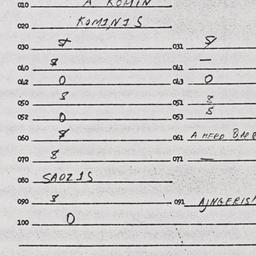 010 A KOMIN
020 KOMINIS
030 031 9
040 8 041 —
042 0 043 0
050 8 051 8
052 0 053 5
060 8 061 A HEED BAR
070 8 071 —
080 SAOZ1S
090 8 091 AJNGERISH
100 0